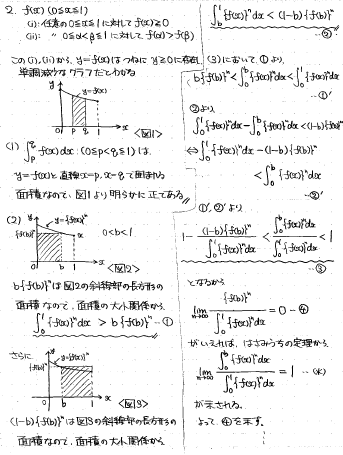 2. f(x) (0≦x≦1)
(i): 任意の 0≦x≦1 に対して f(x)≧0
(ii): 〃 0≦α<β≦1 に対して f(α)>f(β)
この(i),(ii)から, y=f(x)はつねに y≧0 に存在し
単調減少なグラフだとわかる
y
y=f(x)
0 p q 1 x
<図1>
(1) ∫_p^q f(x)dx (0≦p<q≦1) は
y=f(x)と直線 x=p, x=q で囲まれる
面積なので, 図1より明らかに正である
(2) y
y={f(x)}^n
0<b<1
{f(b)}^n
0 b 1 x
<図2>
b{f(b)}^n は図2の斜線部の長方形の
面積なので, 面積の大小関係から
∫_0^1 {f(x)}^n dx > b{f(b)}^n …①
さらに
y
y={f(x)}^n
{f(b)}^n
0 b 1 x
<図3>
(1-b){f(b)}^n は図3の斜線部の長方形の
面積なので, 面積の大小関係から
∫_b^1 {f(x)}^n dx < (1-b){f(b)}^n
…②
(3) において, ①より,
b{f(b)}^n < ∫_0^b {f(x)}^n dx < ∫_0^1 {f(x)}^n dx
…①'
②より
∫_0^1 {f(x)}^n dx - ∫_0^b {f(x)}^n dx < (1-b){f(b)}^n
⇔ ∫_0^1 {f(x)}^n dx - (1-b){f(b)}^n
< ∫_0^b {f(x)}^n dx
…②'
①',②'より
1 - (1-b){f(b)}^n / ∫_0^1 {f(x)}^n dx < ∫_0^b {f(x)}^n dx / ∫_0^1 {f(x)}^n dx < 1
…③
となるから
lim_{n→∞} {f(b)}^n / ∫_0^1 {f(x)}^n dx = 0 …④
がいえれば, はさみうちの定理から
lim_{n→∞} ∫_0^b {f(x)}^n dx / ∫_0^1 {f(x)}^n dx = 1 …(*)
が示される.
よって ④を示す.